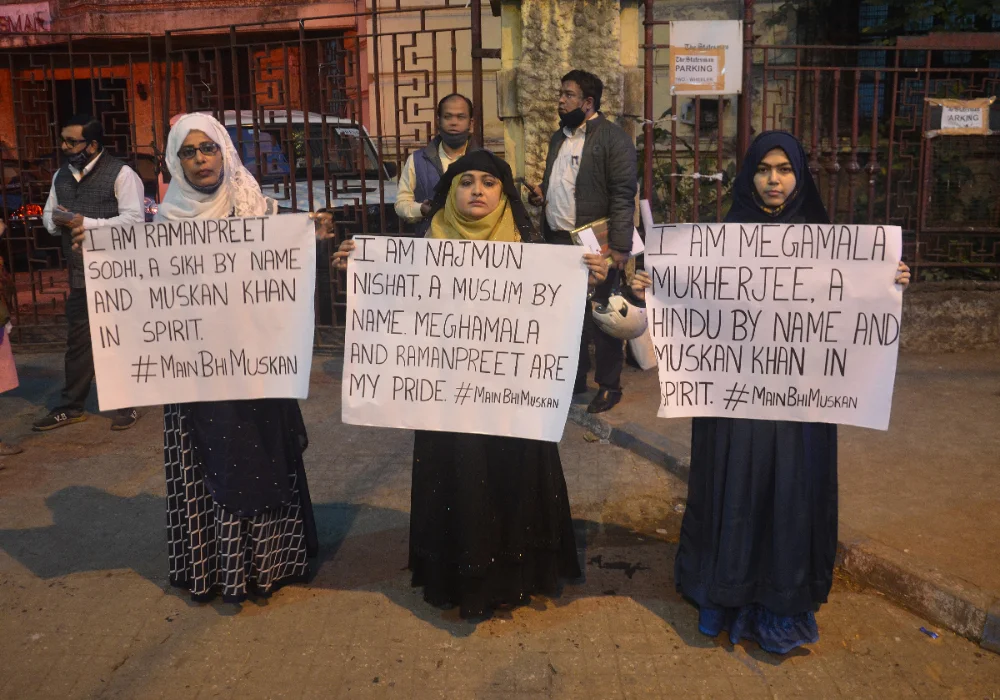 I AM RAMANPREET
SODHI, A SIKH BY NAME
AND MUSKAN KHAN
IN SPIRIT.
#MAINBHIMUSKAN
I AM NAJMUN
NISHAT, A MUSLIM BY
NAME. MEGHAMALA
AND RAMANPREET ARE
MY PRIDE. #MAINBHIMUSKAN
I AM MEGAMALA
MUKHERJEE, A
HINDU BY NAME AND
MUSKAN KHAN IN
SPIRIT. #MAINBHIMUSKAN
The Statesman
The Statesman
PARKING
PARKING